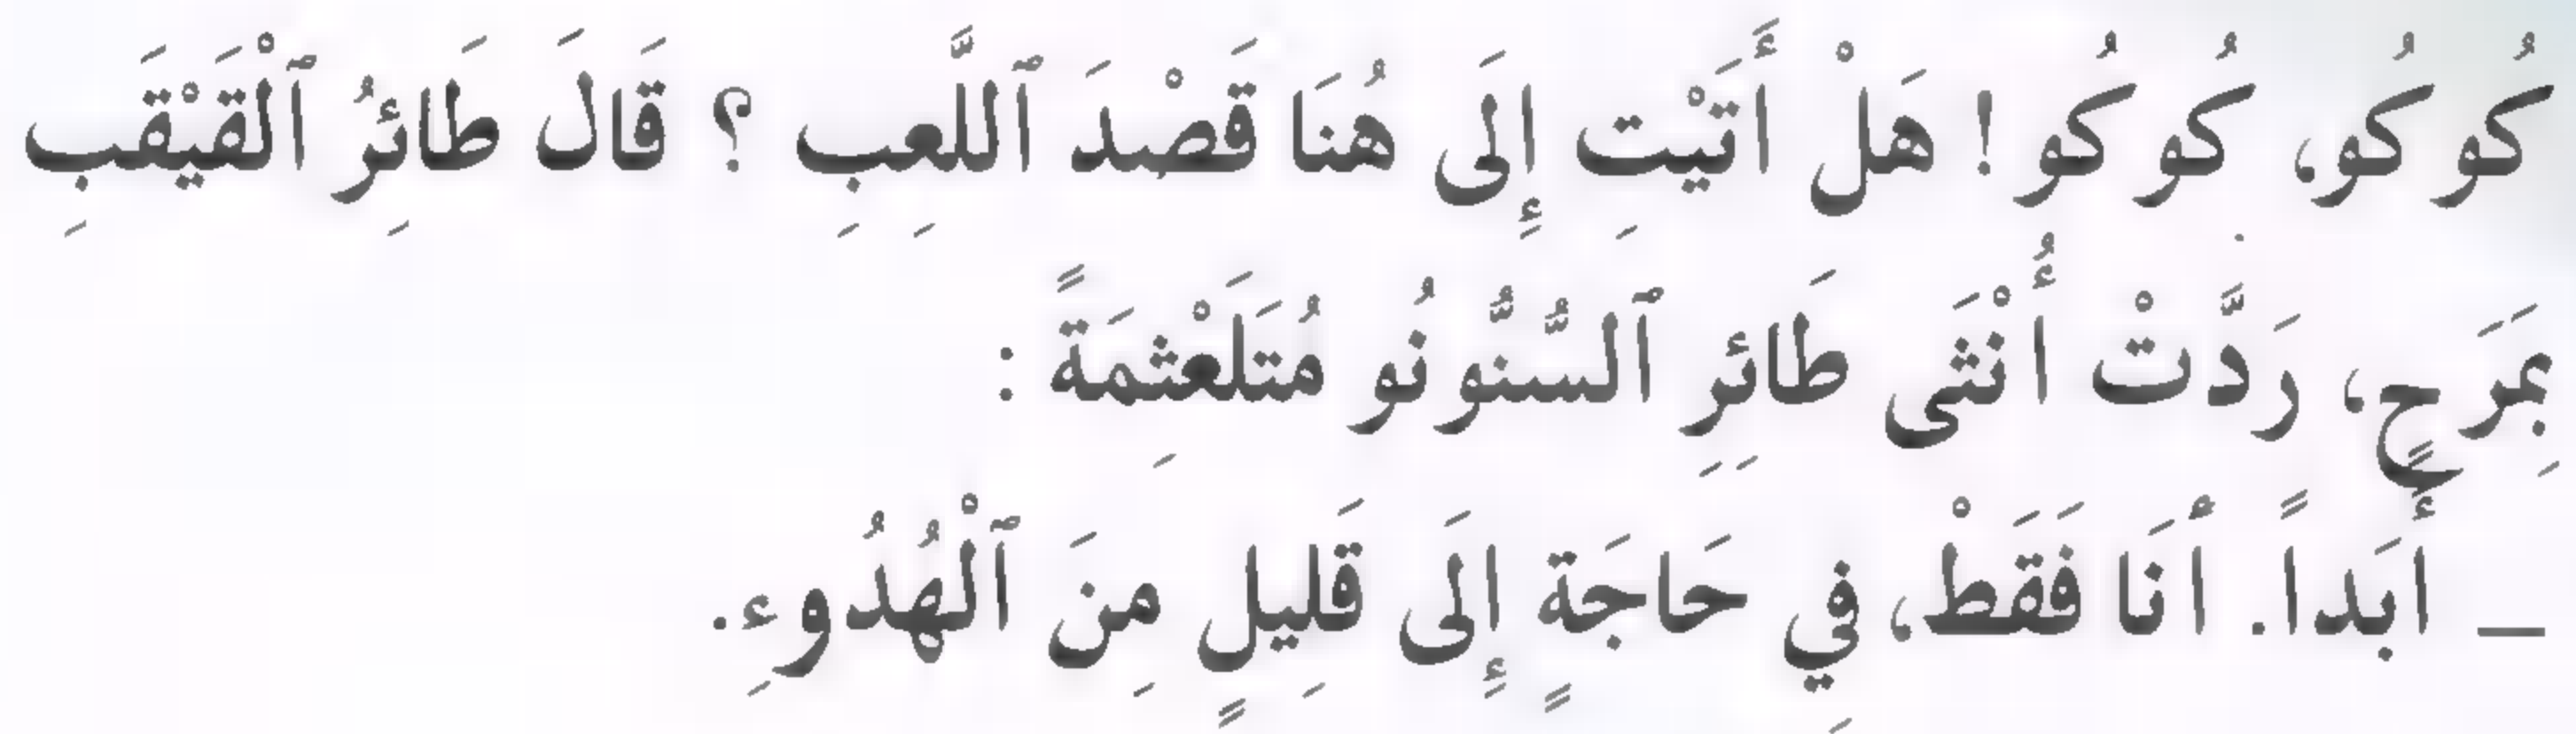 كُوكُو، كُوكُو! هَلْ أَتَيْتِ إِلَى هُنَا قَصْدَ ٱللَّعِبِ ؟ قَالَ طَائِرُ ٱلْقَيْقَبِ
بِمَرَحٍ، رَدَّتْ أُنْثَى طَائِرِ ٱلسُّنُّونُو مُتَلَعْثِمَةً :
_ أَبَداً. أَنَا فَقَطْ، فِي حَاجَةٍ إِلَى قَلِيلٍ مِنَ ٱلْهُدُوءِ.